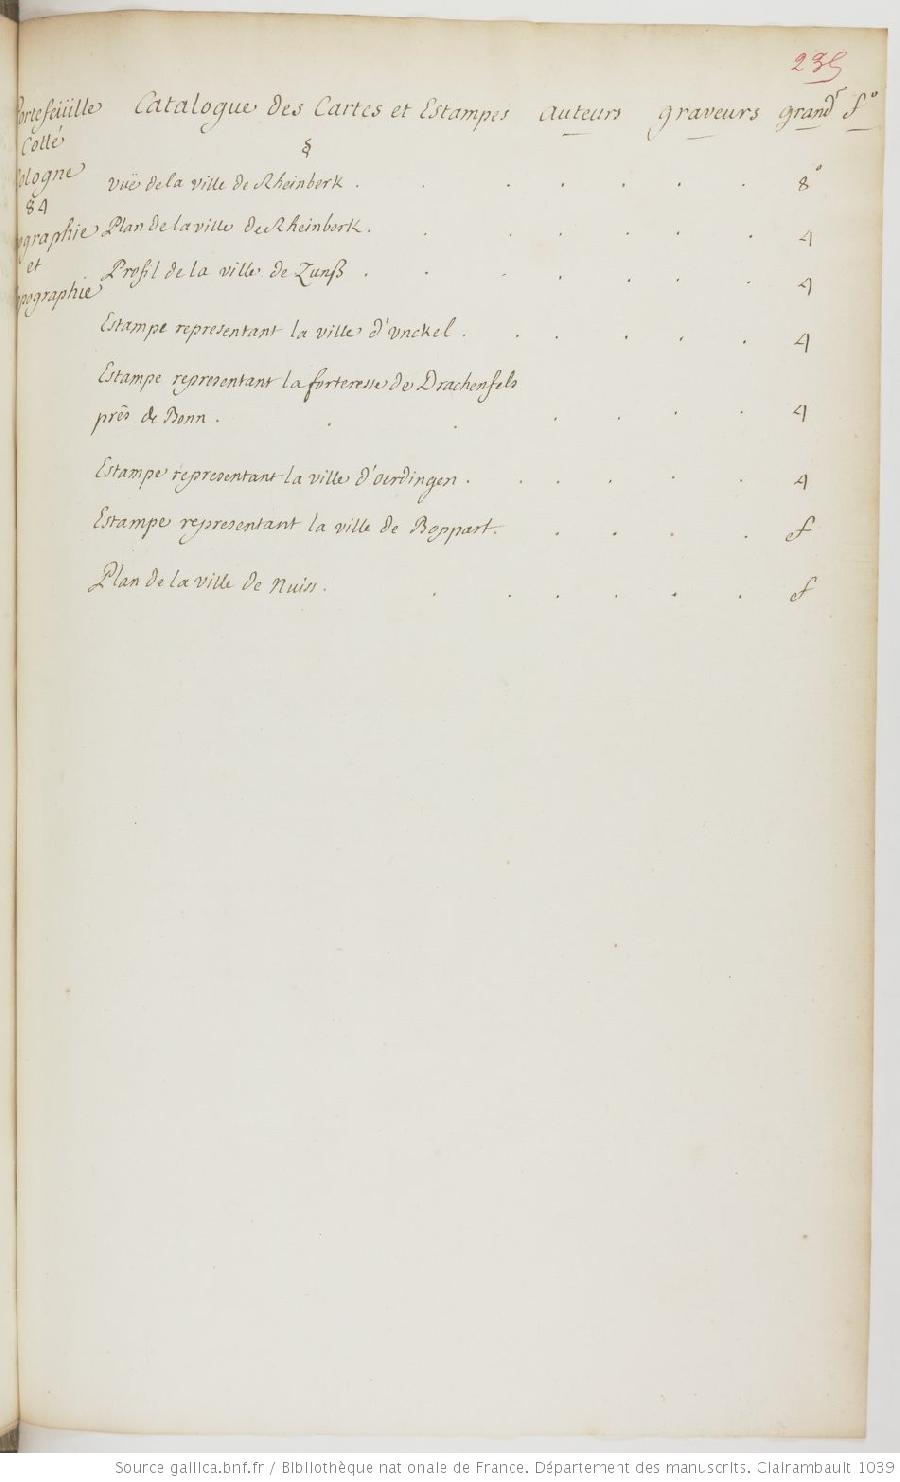 235
Portefeüille Catalogue des Cartes et Estampes auteurs graveurs grandr fo
Cotté
Cologne
84
et
§
Vuë de la ville de Rheinberk . . . . . . . 8o
Plan de la ville de Rheinberk . . . . . . . 4
Profil de la ville de Zunß . . . . . . . 4
Estampe representant la ville d'Unckel . . . . . . 4
Estampe representant la forteresse de Drachenfels
près de Bonn . . . . . . 4
Estampe representant la ville d'Oerdingen . . . . . . 4
Estampe representant la ville de Boppart . . . . . ef
Plan de la ville de Nuiss . . . . . . . ef
Source gallica.bnf.fr / Bibliothèque nationale de France. Département des manuscrits. Clairambault 1039